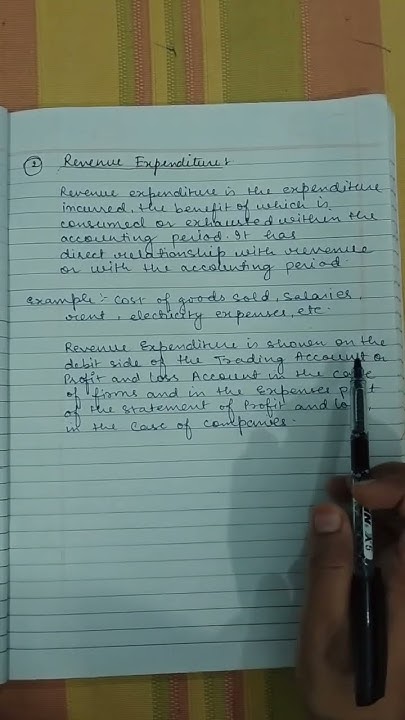 ② Revenue Expenditure:
Revenue expenditure is the expenditure
incurred, the benefit of which is
consumed or exhausted within the
accounting period. It has
direct relationship with revenue
or with the accounting period.
Example:- Cost of goods sold, salaries,
rent, electricity expenses, etc.
Revenue Expenditure is shown on the
debit side of the Trading Account or
Profit and Loss Account in the case
of firms and in the Expenses part
of the statement of Profit and
in the case of companies.